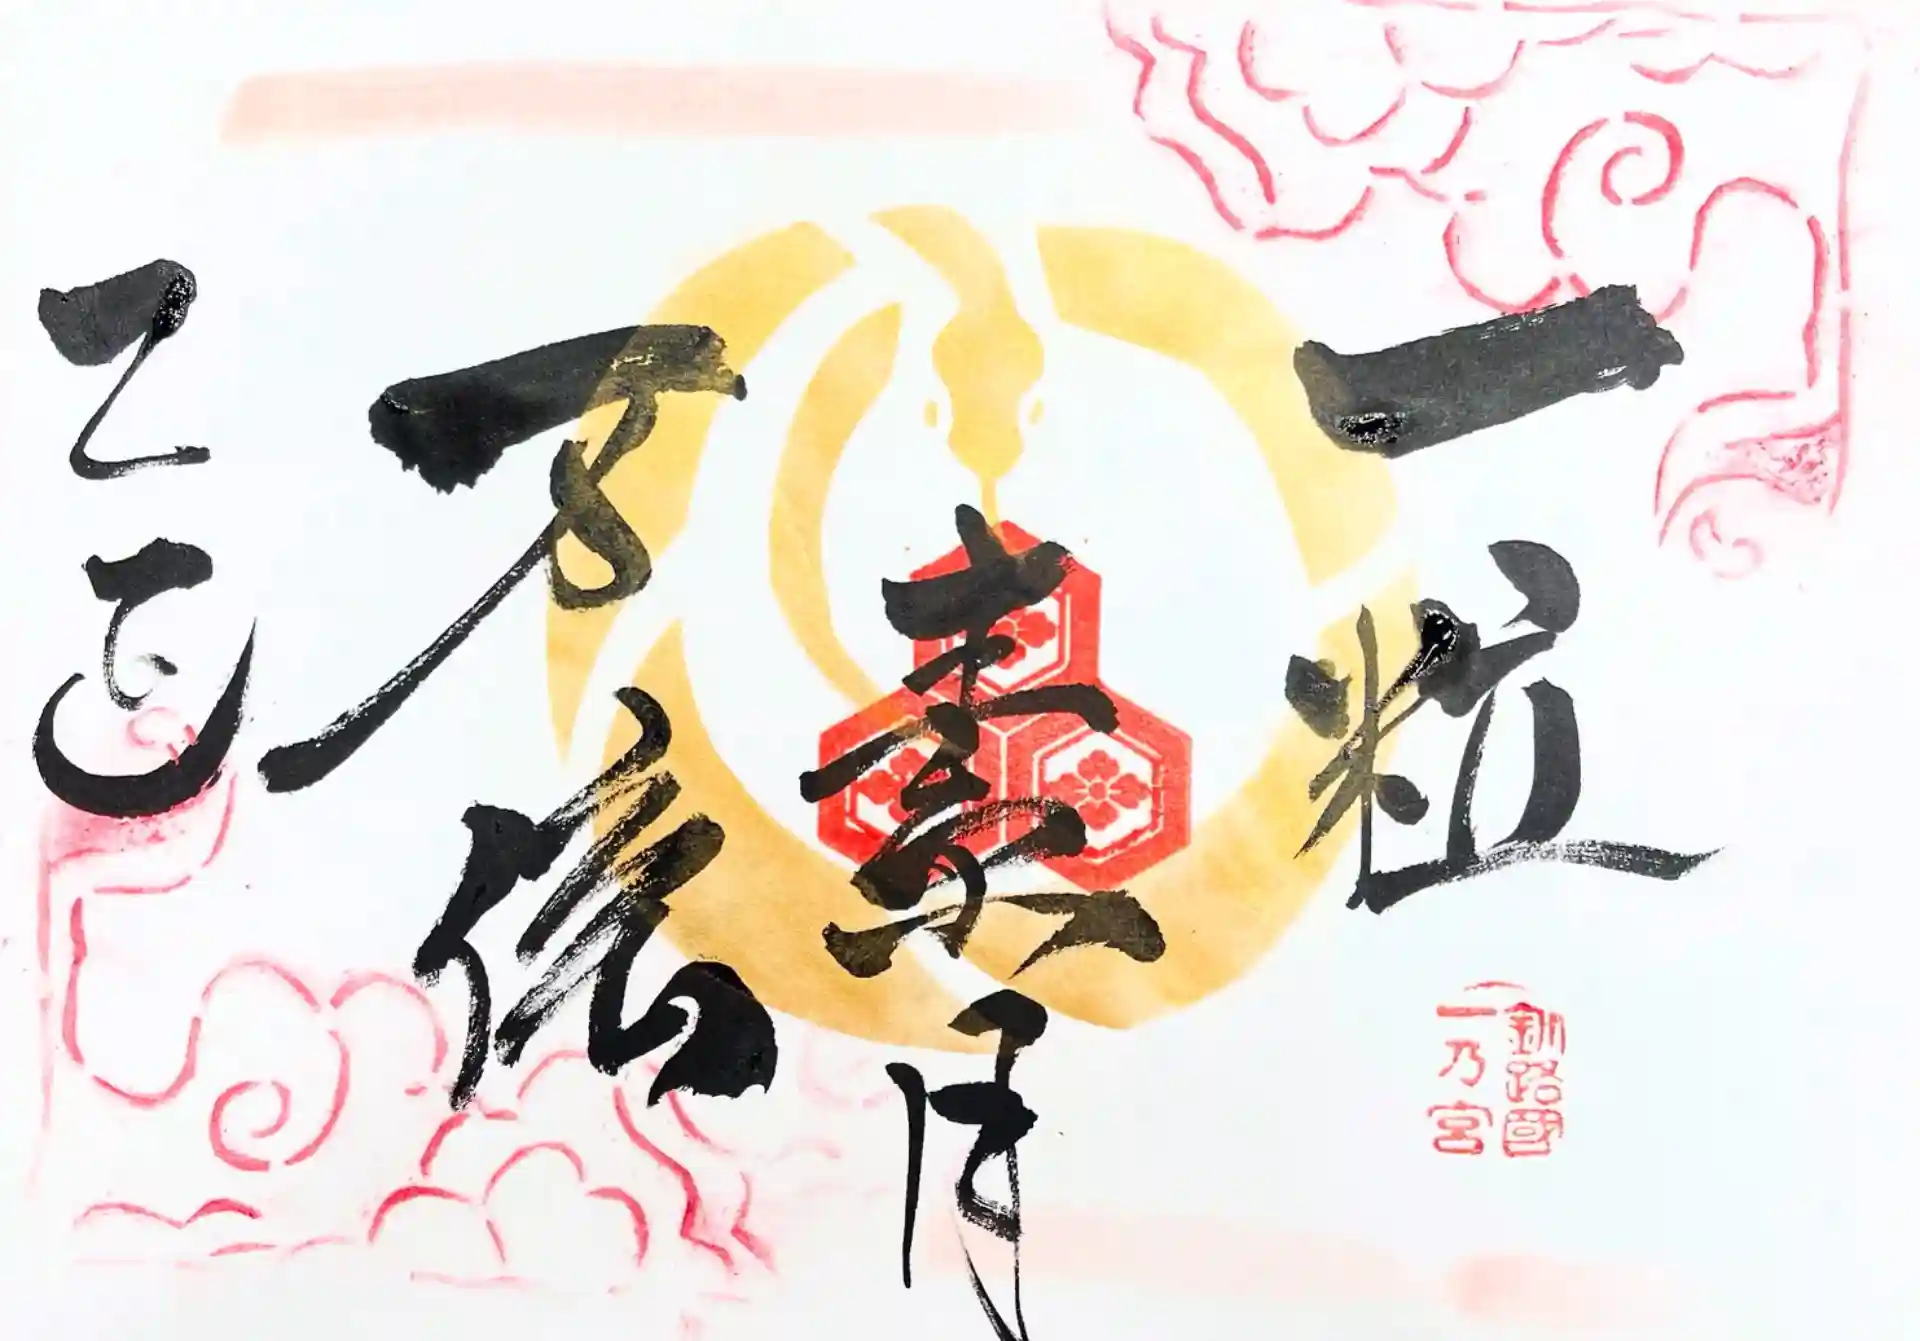 一粒
万倍
乙巳
釧路國
一乃宮